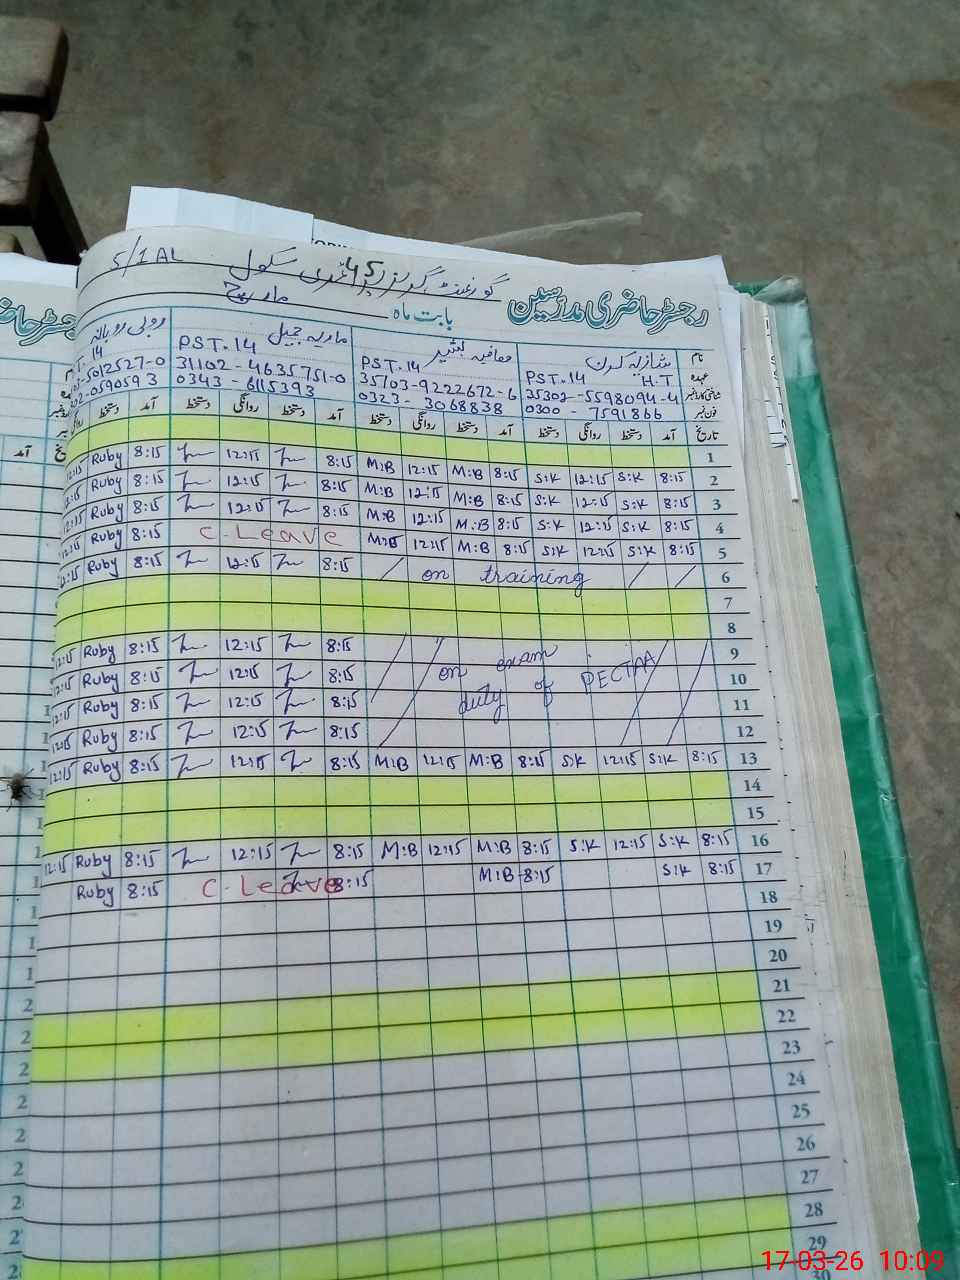 5/1AL
گورنمنٹ گرلز پرائمری سکول 45
مارچ
رجسٹر حاضری مدرسین
بابت ماہ
نام شازیہ کرن بشیر ماریہ جمیل روبی روبانہ
عہدہ H.T PST.14 PST.14 PST.14 14
شناختی کارڈ نمبر 35302-5598094-4 35103-9222672-6 31102-4635751-0 5012527-0
فون نمبر 0300-7591866 0323-3068838 0343-6115393 02-0590593
تاریخ آمد دستخط روانگی دستخط آمد دستخط روانگی دستخط آمد دستخط روانگی دستخط آمد دستخط
1
12:15 Ruby 8:15 12:15 8:15 M:B 12:15 M:B 8:15 S:K 12:15 S:K 8:15 2
12:15 Ruby 8:15 12:15 8:15 M:B 12:15 M:B 8:15 S:K 12:15 S:K 8:15 3
12:15 Ruby 8:15 12:15 8:15 M:B 12:15 M:B 8:15 S:K 12:15 S:K 8:15 4
12:15 Ruby 8:15 C.Leave M:B 12:15 M:B 8:15 S:K 12:15 S:K 8:15 5
12:15 Ruby 8:15 12:15 8:15 on training 6
7
8
12:15 Ruby 8:15 12:15 8:15 on exam 9
12:15 Ruby 8:15 12:15 8:15 duty of PECTAA 10
12:15 Ruby 8:15 12:15 8:15 11
12:15 Ruby 8:15 12:15 8:15 12
12:15 Ruby 8:15 12:15 8:15 M:B 12:15 M:B 8:15 S:K 12:15 S:K 8:15 13
14
15
12:15 Ruby 8:15 12:15 8:15 M:B 12:15 M:B 8:15 S:K 12:15 S:K 8:15 16
Ruby 8:15 C.Leave 8:15 M:B 8:15 S:K 8:15 17
18
19
20
21
22
23
24
25
26
27
28
29
30
17-03-26 10:09